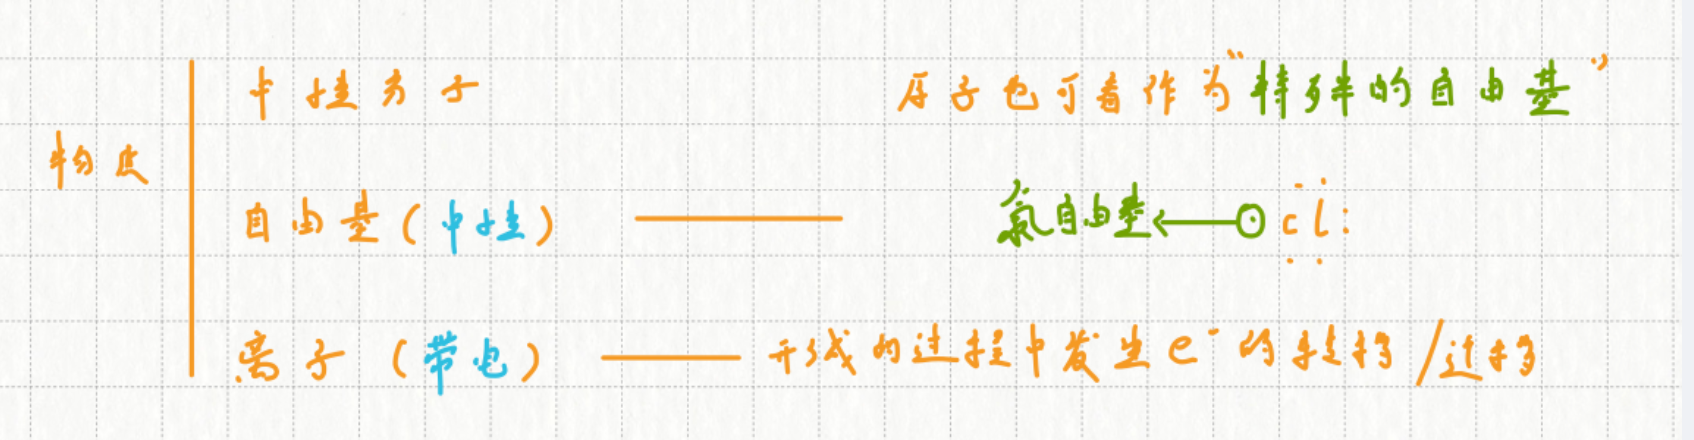 中性分子 原子也可看作为“特殊的自由基”
物质
自由基(中性) —— 氯自由基←⊙ cl:
离子(带电) —— 形成的过程中发生e⁻的转移/迁移